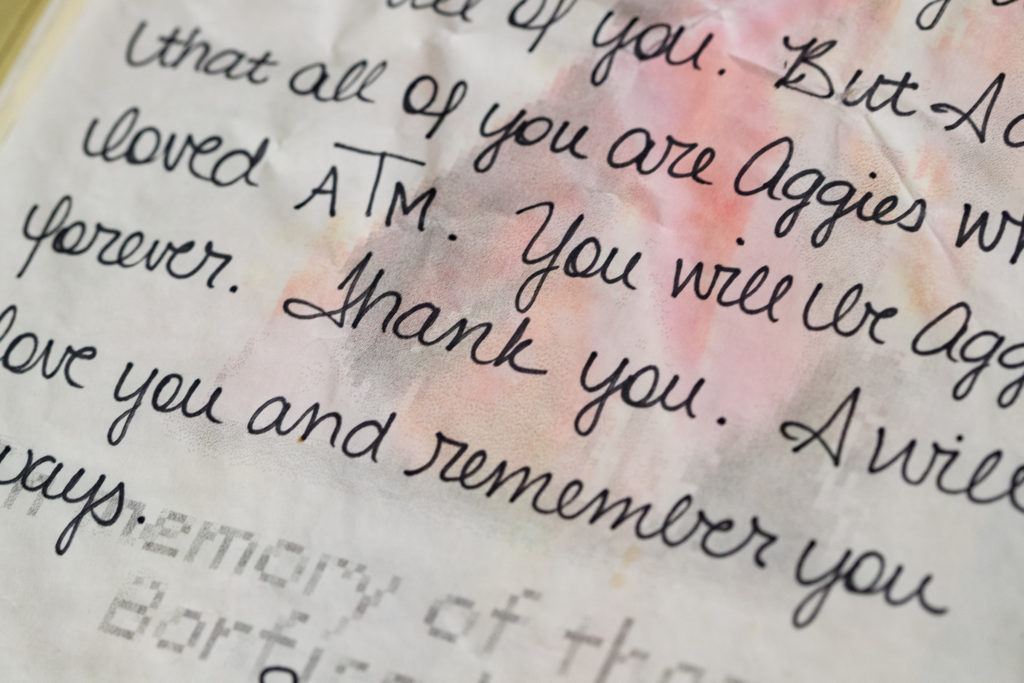 all of you. But I
that all of you are Aggies
loved ATM. You will be Agg
forever. Thank you. I will
love you and remember you
ways.
memory of the
Bonfire